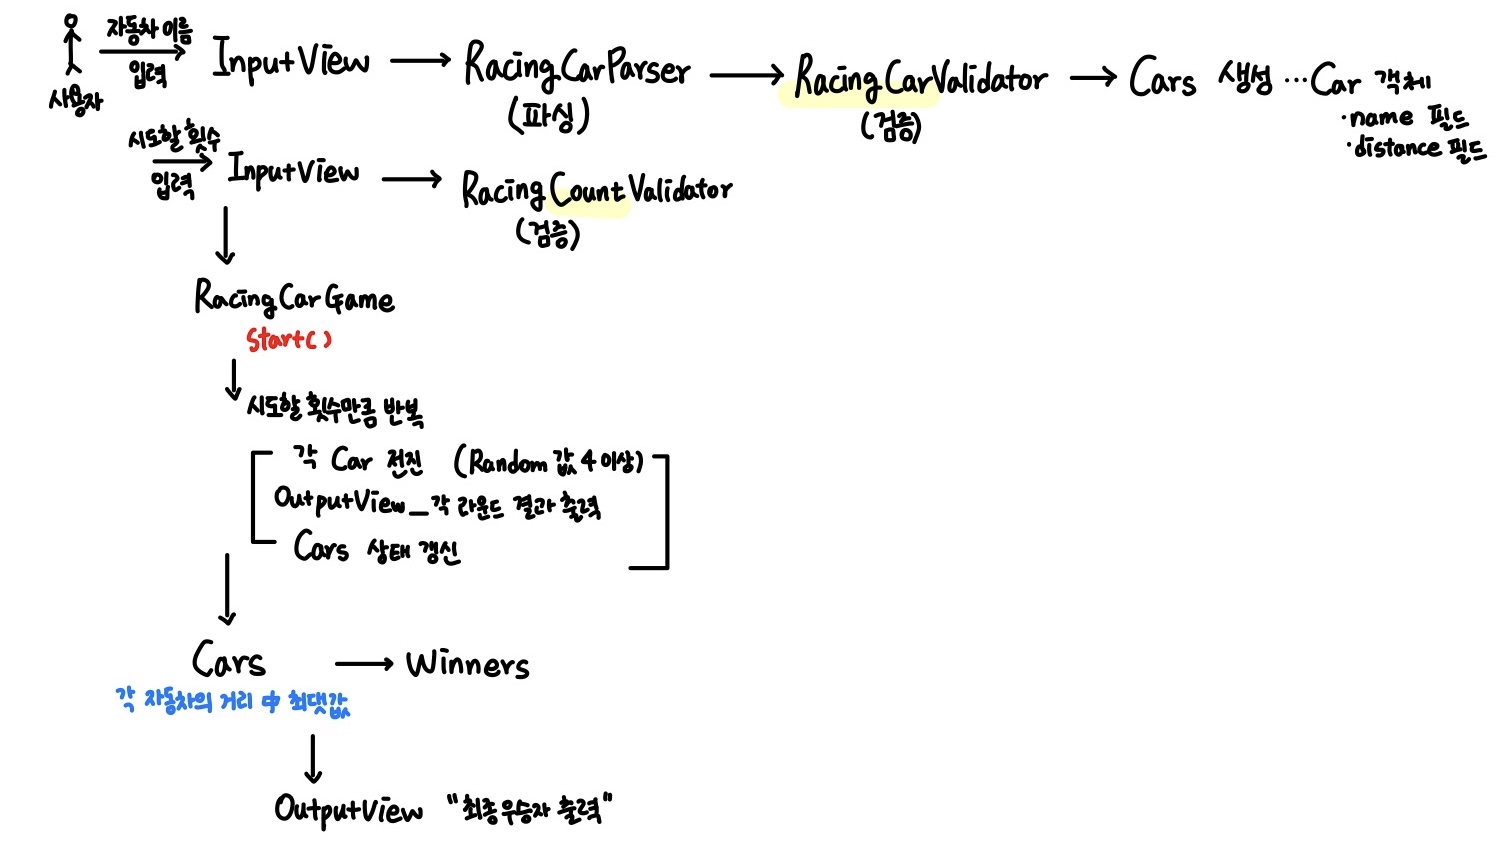 사용자
자동차 이름
입력
InputView
RacingCarParser
(파싱)
RacingCarValidator
(검증)
Cars 생성 ...Car 객체
·name 필드
·distance 필드
시도할 횟수
입력
InputView
RacingCountValidator
(검증)
RacingCarGame
start()
시도할 횟수만큼 반복
각 Car 전진 (Random 값 4 이상)
OutputView_각 라운드 결과 출력
Cars 상태 갱신
Cars
각 자동차의 거리 中 최댓값
Winners
OutputView "최종우승자 출력"